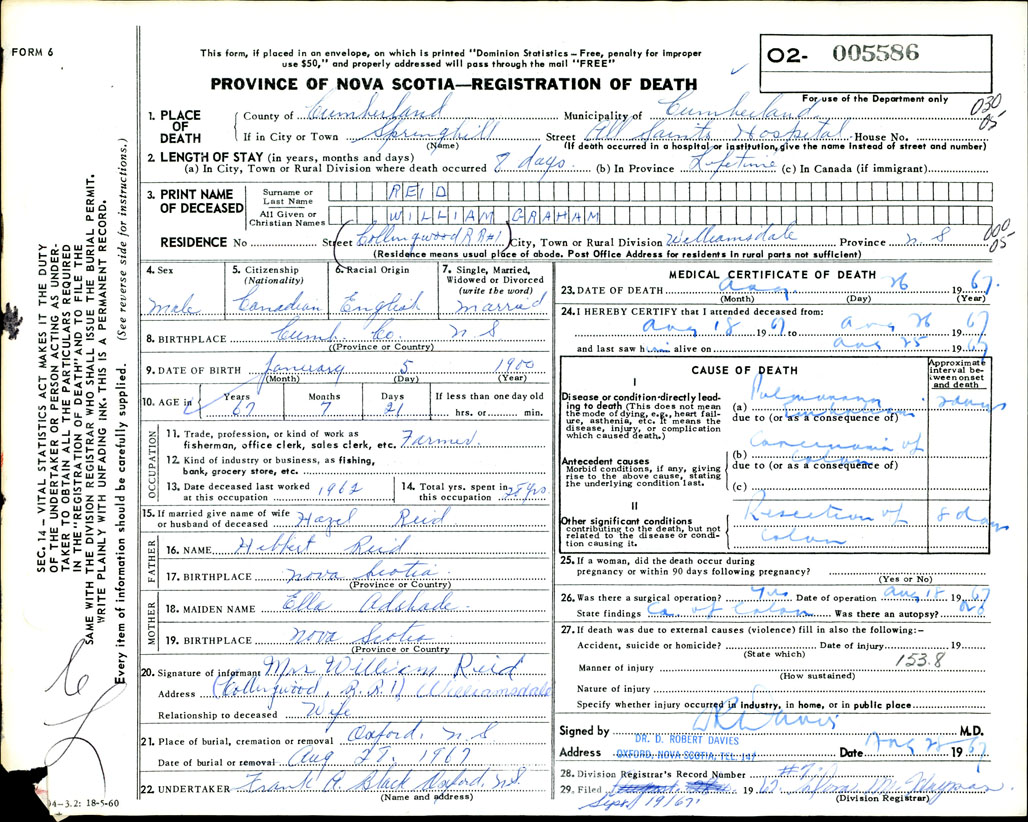 FORM 6
This form, if placed in an envelope, on which is printed "Dominion Statistics – Free, penalty for improper
use $50," and properly addressed will pass through the mail "FREE"
PROVINCE OF NOVA SCOTIA—REGISTRATION OF DEATH
O2- 005586
For use of the Department only
030
05-
1. PLACE OF DEATH
County of Cumberland Municipality of Cumberland
If in City or Town Springhill Street All Saints Hospital House No.
(Name) (If death occurred in a hospital or institution, give the name instead of street and number)
2. LENGTH OF STAY (in years, months and days)
(a) In City, Town or Rural Division where death occurred 8 days. (b) In Province Lifetime (c) In Canada (if immigrant)
3. PRINT NAME OF DECEASED
Surname or Last Name REID
All Given or Christian Names WILLIAM GRAHAM
000
05-
RESIDENCE No Street Collingwood RR#1 City, Town or Rural Division Williamsdale Province N S
(Residence means usual place of abode. Post Office Address for residents in rural parts not sufficient)
4. Sex
Male
5. Citizenship
(Nationality)
Canadian
6. Racial Origin
English
7. Single, Married,
Widowed or Divorced
(write the word)
married
8. BIRTHPLACE Cumb. Co. N S
(Province or Country)
9. DATE OF BIRTH January 5 1900
(Month) (Day) (Year)
10. AGE in Years 67 Months 7 Days 21 If less than one day old
hrs. or min.
OCCUPATION
11. Trade, profession, or kind of work as
fisherman, office clerk, sales clerk, etc. Farmer.
12. Kind of industry or business, as fishing,
bank, grocery store, etc.
13. Date deceased last worked
at this occupation 1962
14. Total yrs. spent in
this occupation 25 yrs.
15. If married give name of wife
or husband of deceased Hazel Reid
FATHER
16. NAME Hibbert Reid
17. BIRTHPLACE Nova Scotia
(Province or Country)
MOTHER
18. MAIDEN NAME Ella Adshade.
19. BIRTHPLACE Nova Scotia
(Province or Country)
20. Signature of informant Mrs William Reid
Address (Collingwood, R.R.1) Williamsdale
Relationship to deceased Wife
21. Place of burial, cremation or removal Oxford, N.S
Date of burial or removal Aug 29. 1967
22. UNDERTAKER Frank A. Black Oxford, N S
(Name and address)
MEDICAL CERTIFICATE OF DEATH
23. DATE OF DEATH Aug 26 1967.
(Month) (Day) (Year)
24. I HEREBY CERTIFY that I attended deceased from:
Aug 18 1967 to Aug 26 67
and last saw him alive on Aug 25 1967
CAUSE OF DEATH
Approximate interval between onset and death
I
Disease or condition directly leading to death (This does not
mean the mode of dying, e.g., heart failure, asthenia, etc. It means the
disease, injury, or complication
which caused death.)
(a) Pulmonary Embolism 2 days
due to (or as a consequence of)
Antecedent causes
Morbid conditions, if any, giving
rise to the above cause, stating
the underlying condition last.
(b) Carcinoma of Colon
due to (or as a consequence of)
(c)
II
Other significant conditions
contributing to the death, but not
related to the disease or condition causing it.
Resection of Colon 8 days
25. If a woman, did the death occur during
pregnancy or within 90 days following pregnancy?
(Yes or No)
26. Was there a surgical operation? Yes Date of operation Aug 18 1967
State findings Ca. of Colon Was there an autopsy? No
27. If death was due to external causes (violence) fill in also the following:–
Accident, suicide or homicide? Date of injury 19
(State which)
153.8
Manner of injury
(How sustained)
Nature of injury
Specify whether injury occurred in industry, in home, or in public place
Signed by DR Davies M.D.
DR. D. ROBERT DAVIES
Address OXFORD, NOVA SCOTIA, TEL: 147 Date Aug 1967
28. Division Registrar's Record Number #9
29. Filed Sept. 19/67. 1967
(Division Registrar)
SEC. 14 – VITAL STATISTICS ACT MAKES IT THE DUTY
OF THE UNDERTAKER OR PERSON ACTING AS UNDERTAKER TO OBTAIN ALL THE PARTICULARS REQUIRED
IN THE "REGISTRATION OF DEATH" AND TO FILE THE
SAME WITH THE DIVISION REGISTRAR WHO SHALL ISSUE THE BURIAL PERMIT.
WRITE PLAINLY WITH UNFADING INK. THIS IS A PERMANENT RECORD.
Every item of information should be carefully supplied. (See reverse side for instructions.)
-3.2: 18-5-60